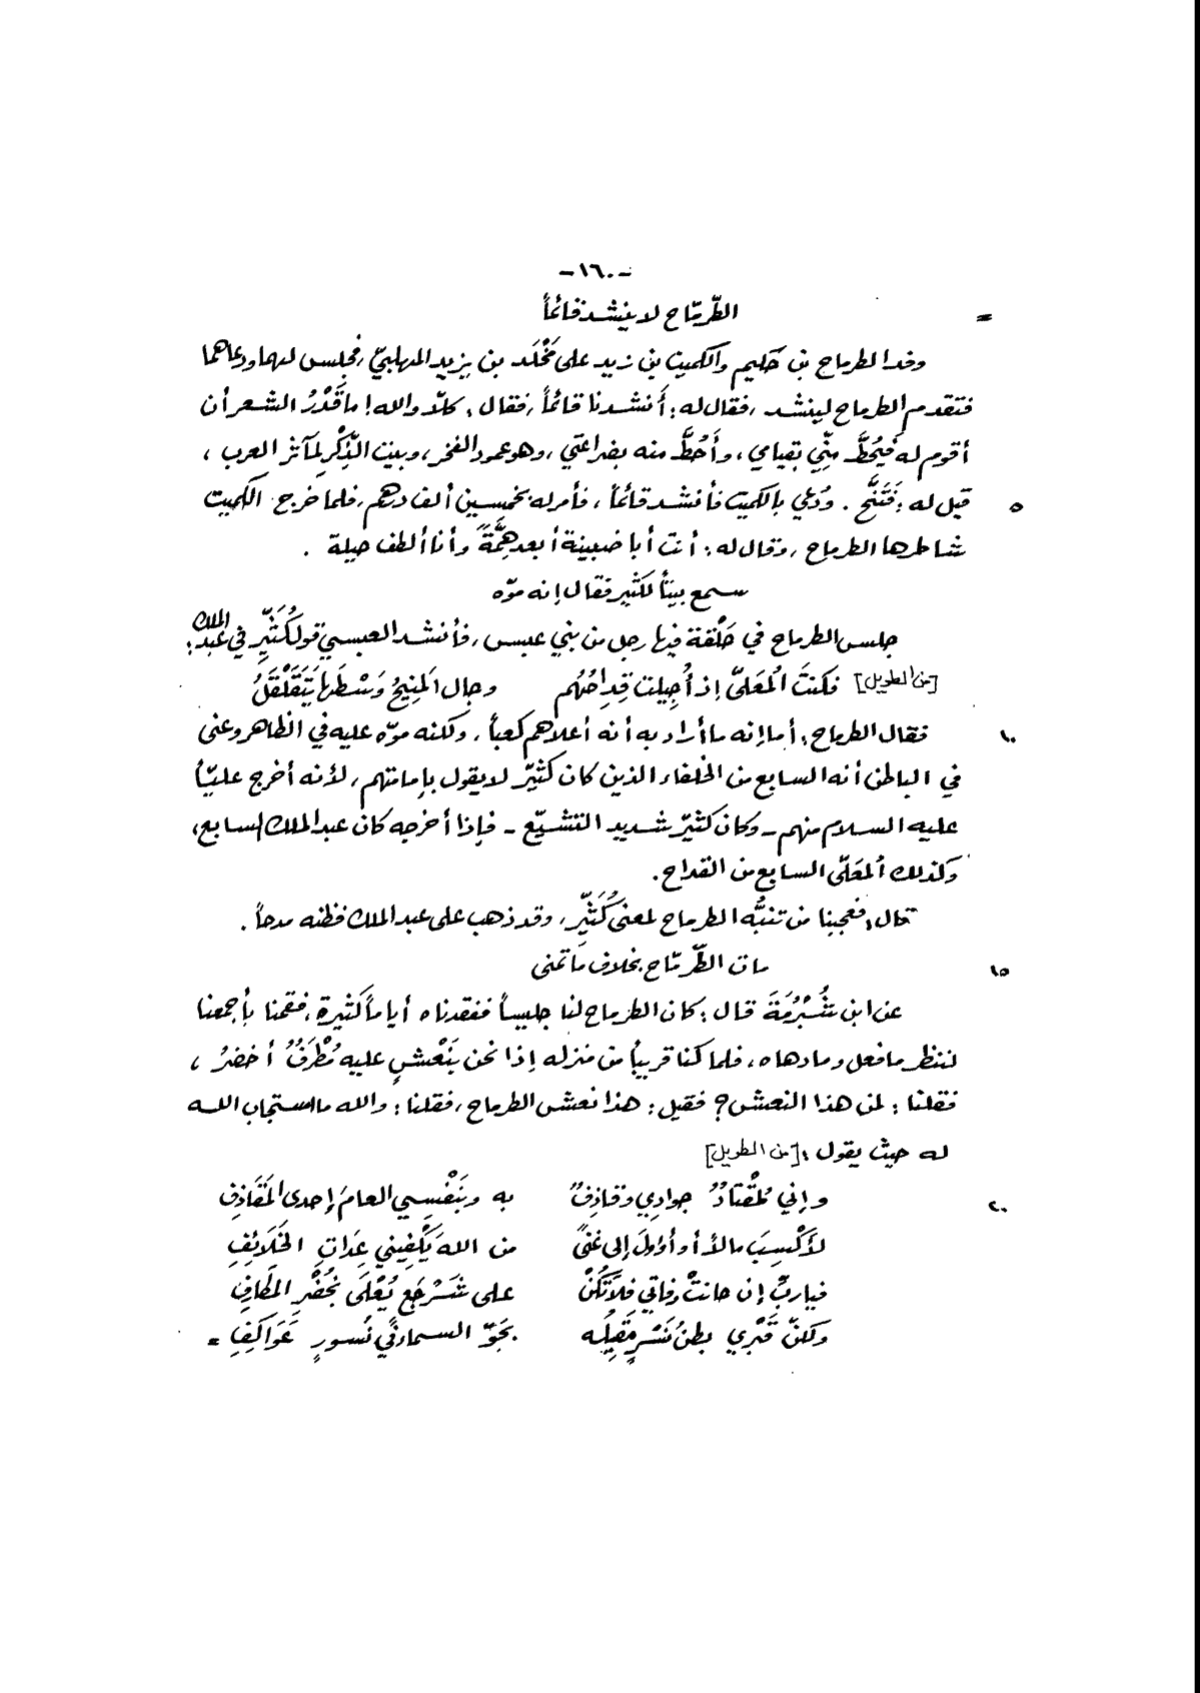 -١٦٠-
= الطّرمّاح لا ينشد قائماً
وفد الطرماح بن حَكيم والكميت بن زيد على مَخْلَد بن يزيد المهلبيّ، فجلس لهما ودعاهما
فتقدم الطرماح لينشد، فقال له: أَنشدنا قائماً، فقال: كلاّ والله! ما قَدْرُ الشعر أن
أقوم له فَيُحَطَّ مِنّي بقيامي، وأَحُطَّ منه بضراعتي، وهو عمود الفخر، وبيت الذّكْر لمآثر العرب،
قيل له: فَتَنَحَّ. ودُعي بالكميت فأنشد قائماً، فأمر له بخمسين ألف درهم، فلما خرج الكميت ٥
شاطرها الطرماح، وقال له: أنت أبا ضبينة أبعد هِمَّةً وأنا ألطف حيلة.
سمع بيتاً لكثير فقال إنه موّه
جلس الطرماح في حَلْقة فيها رجل من بني عبس، فأنشد العبسيّ قول كُثَيِّر في عبد الملك:
[من الطويل] فكنتَ المُعَلىَّ إذ أُجِيلت قِداحُهُم وجال المَنِيحُ وَسْطَها يَتَقَلْقَلُ
فقال الطرماح: أما إنه ما أراد به أنه أعلاهم كعباً، ولكنه موّه عليه في الظاهر وعنى ١٠
في الباطن أنه السابع من الخلفاء الذين كان كثيّر لا يقول بإمامتهم، لأنه أخرج عليّاً
عليه السلام منهم - وكان كثيّر شديد التشيّع - فإذا أخرجه كان عبد الملك السابع،
وكذلك المُعَلّى السابع من القداح.
قال: فعجبنا من تنبُّه الطرماح لمعنى كُثَيِّر، وقد ذهب على عبد الملك فظنه مدحاً.
مات الطّرمّاح بخلاف ما تمنى ١٥
عن ابن شُبْرُمَةَ قال: كان الطرماح لنا جليساً ففقدناه أياماً كثيرة، فقمنا بأجمعنا
لننظر ما فعل وما دهاه، فلما كنا قريباً من منزله إذا نحن بنَعْشٍ عليه مُطْرَفٌ أخضرُ،
فقلنا: لمن هذا النعش؟ فقيل: هذا نعش الطرماح، فقلنا: والله ما استجاب الله
له حيث يقول: [من الطويل]
وإني لمُقْتادٌ جوادِي وقاذِفٌ به وبنَفْسِي العامَ إحدى المَقَاذِفِ ٢٠
لأَكْسِبَ مالاً أو أؤولَ إلى غنىً من الله يَكْفِيني عِدَاتِ الخَلَائِفِ
فياربِّ إن حانتْ وفاتي فلا تَكُنْ على شَرْجَعٍ يُعْلَى بخُضْرِ المَطَارِفِ
ولكنّ قَبْرِي بطنُ نَسْرٍ مَقِيلُه بجَوّ السماء في نُسورٍ عَوَاكِفِ =